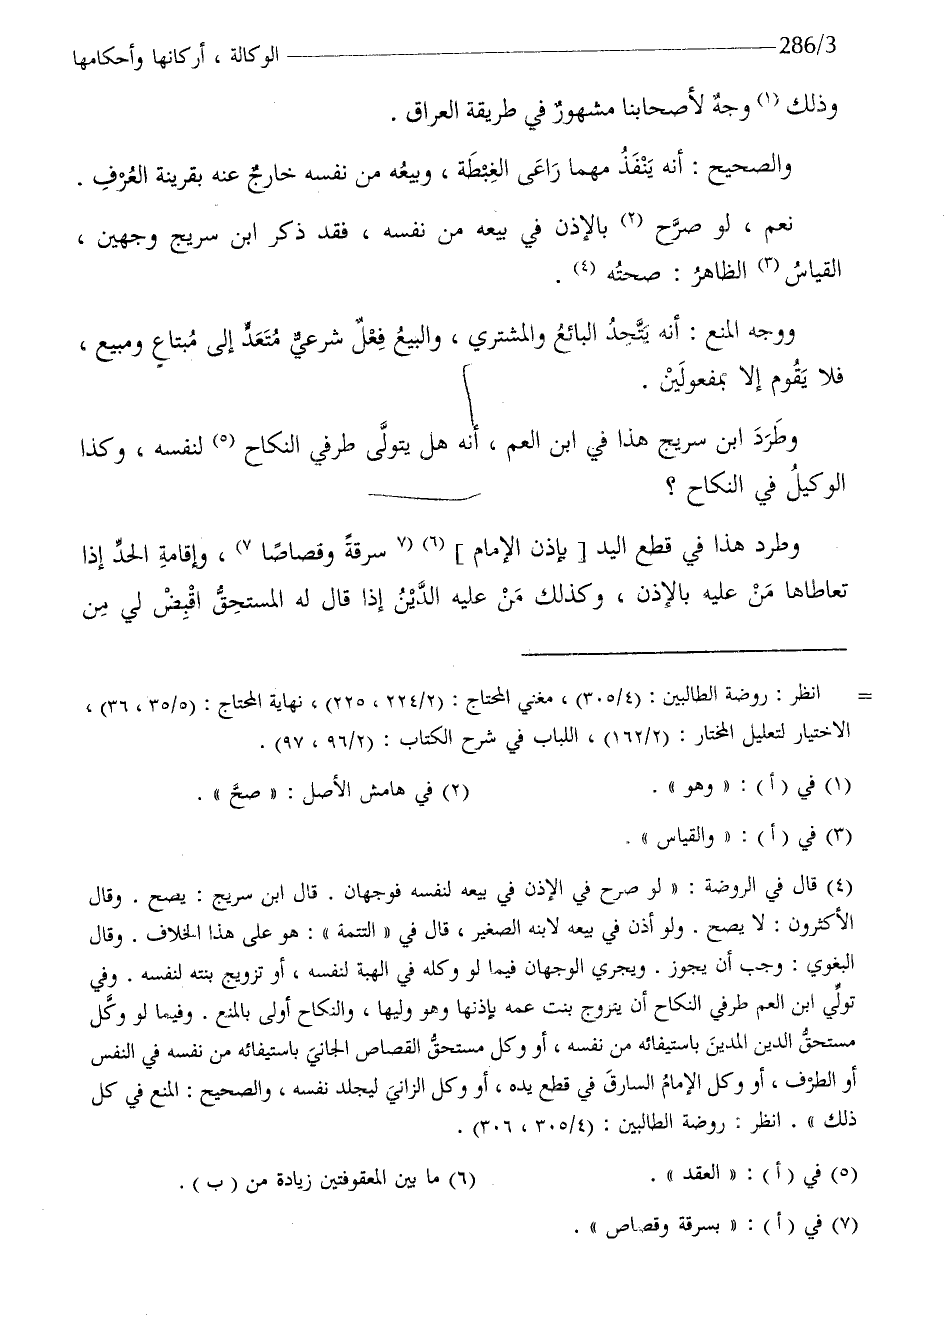 286/3 ــــــــــ الوكالة ، أركانها وأحكامها
وذلك (١) وجهٌ لأصحابنا مشهورٌ في طريقة العراق .
والصحيح : أنه يَنْفَذُ مهما رَاعَى الغِبْطَة ، وبيعُه من نفسه خارجٌ عنه بقرينة العُرْفِ .
نعم ، لو صرَّح (٢) بالإذن في بيعه من نفسه ، فقد ذكر ابن سريج وجهين ،
القياسُ (٣) الظاهرُ : صحتُه (٤) .
ووجه المنع : أنه يَتَّحِدُ البائعُ والمشتري ، والبيعُ فِعْلٌ شرعيٌّ مُتَعَدٍّ إلى مُبتاعٍ ومبيع ،
فلا يَقُوم إلا بمفعولَيْن .
وطَرَدَ ابن سريج هذا في ابن العم ، أنه هل يتولَّى طرفي النكاح (٥) لنفسه ، وكذا
الوكيلُ في النكاح ؟
وطرد هذا في قطع اليد [ بإذن الإمام ] (٦) (٧ سرقةً وقصاصًا ٧) ، وإقامةِ الحدِّ إذا
تعاطاها مَنْ عليه بالإذن ، وكذلك مَنْ عليه الدَّيْنُ إذا قال له المستحِقُّ اقْبِضْ لي مِن
= انظر : روضة الطالبين : (٣٠٥/٤) ، مغني المحتاج : (٢٢٤/٢ ، ٢٢٥) ، نهاية المحتاج : (٣٥/٥ ، ٣٦) ،
الاختيار لتعليل المختار : (١٦٢/٢) ، اللباب في شرح الكتاب : (٩٦/٢ ، ٩٧) .
(١) في ( أ ) : « وهو » . (٢) في هامش الأصل : « صحَّ » .
(٣) في ( أ ) : « والقياس » .
(٤) قال في الروضة : « لو صرح في الإذن في بيعه لنفسه فوجهان . قال ابن سريج : يصح . وقال
الأكثرون : لا يصح . ولو أذن في بيعه لابنه الصغير ، قال في « التتمة » : هو على هذا الخلاف . وقال
البغوي : وجب أن يجوز . ويجري الوجهان فيما لو وكله في الهبة لنفسه ، أو تزويج بنته لنفسه . وفي
تولِّي ابن العم طرفي النكاح أن يتزوج بنت عمه بإذنها وهو وليها ، والنكاح أولى بالمنع . وفيما لو وكَّل
مستحقُّ الدين المدينَ باستيفائه من نفسه ، أو وكل مستحقُّ القصاص الجانيَ باستيفائه من نفسه في النفس
أو الطرْف ، أو وكل الإمامُ السارقَ في قطع يده ، أو وكل الزانيَ ليجلد نفسه ، والصحيح : المنع في كل
ذلك » . انظر : روضة الطالبين : (٣٠٥/٤ ، ٣٠٦) .
(٥) في ( أ ) : « العقد » . (٦) ما بين المعقوفتين زيادة من ( ب ) .
(٧) في ( أ ) : « بسرقة وقصاص » .